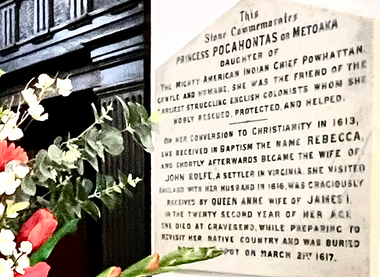 This
Stone Commemorates
PRINCESS POCAHONTAS OR METOAKA
DAUGHTER OF
THE MIGHTY AMERICAN INDIAN CHIEF POWHATTAN.
GENTLE AND HUMANE, SHE WAS THE FRIEND OF THE
EARLIEST STRUGGLING ENGLISH COLONISTS WHOM SHE
NOBLY RESCUED, PROTECTED, AND HELPED.
ON HER CONVERSION TO CHRISTIANITY IN 1613,
SHE RECEIVED IN BAPTISM THE NAME REBECCA,
AND SHORTLY AFTERWARDS BECAME THE WIFE OF
JOHN ROLFE, A SETTLER IN VIRGINIA. SHE VISITED
ENGLAND WITH HER HUSBAND IN 1616, WAS GRACIOUSLY
RECEIVED BY QUEEN ANNE WIFE OF JAMES I.
IN THE TWENTY SECOND YEAR OF HER AGE
SHE DIED AT GRAVESEND, WHILE PREPARING TO
REVISIT HER NATIVE COUNTRY AND WAS BURIED
ON MARCH 21st 1617.